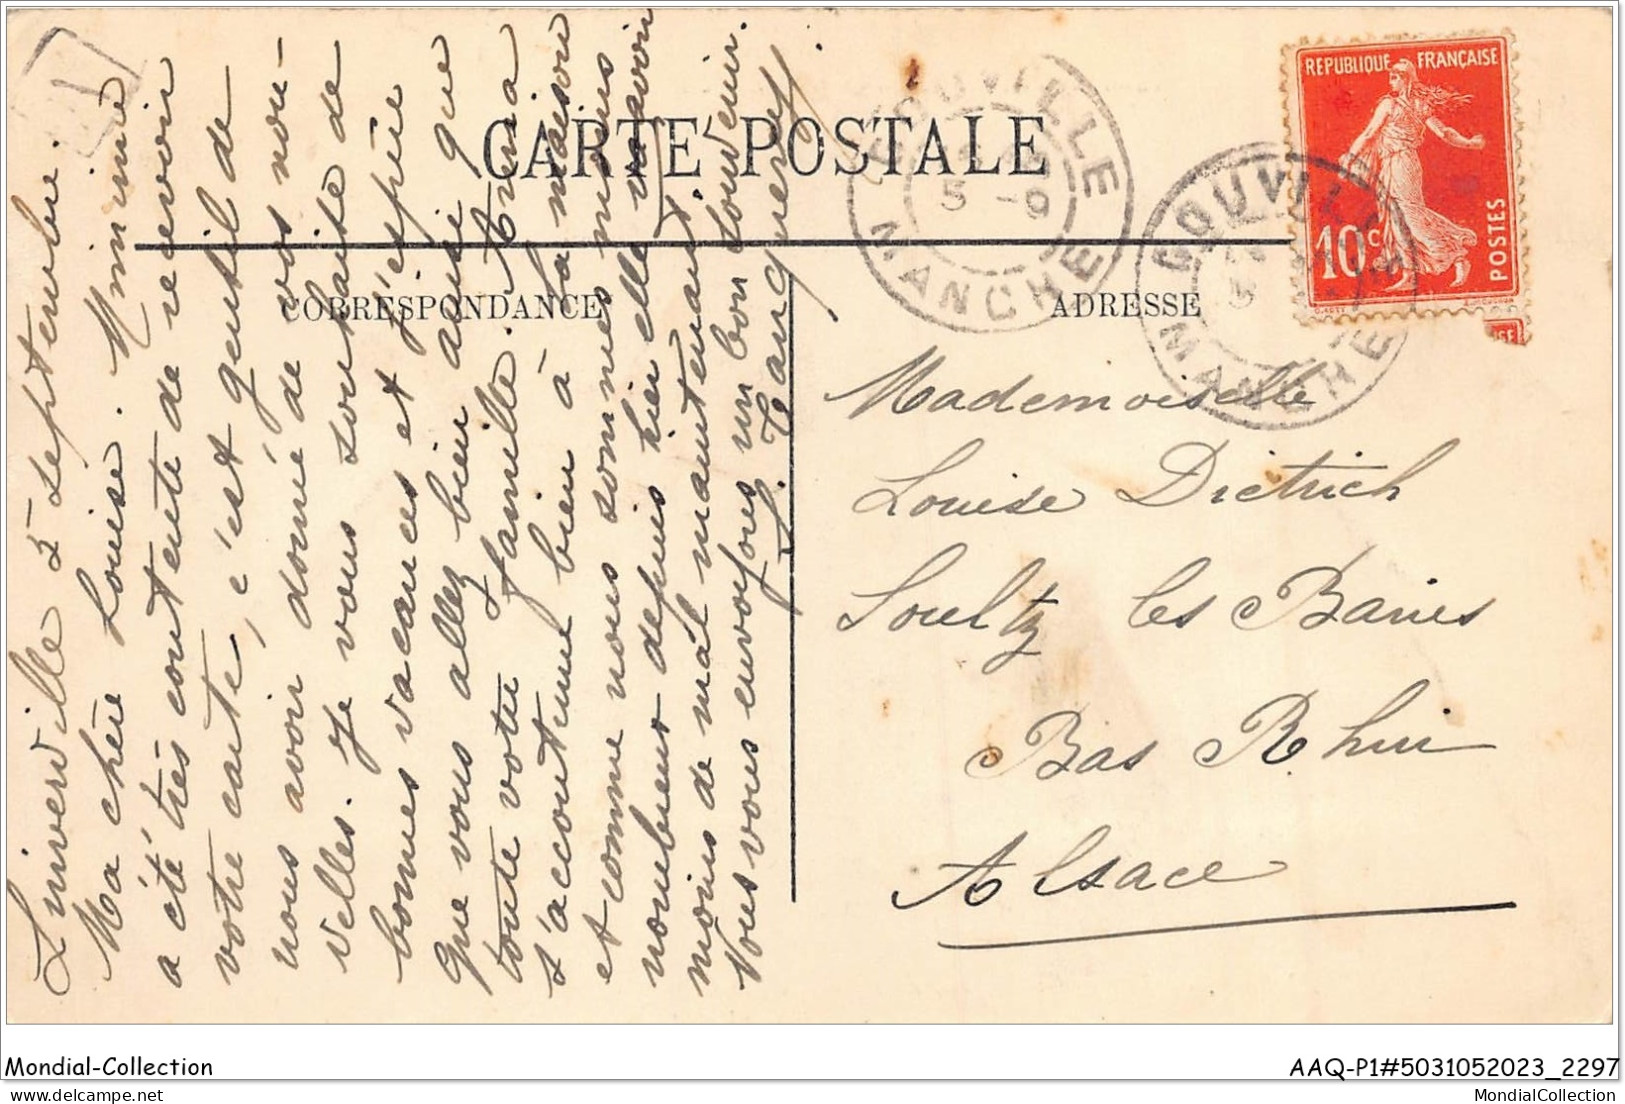 CARTE POSTALE
CORRESPONDANCE
ADRESSE
REPUBLIQUE FRANÇAISE
10c
POSTES
GOUVILLE
5 -9
MANCHE
GOUVILLE
MANCHE
Linverville 5 septembre.
Ma chère Louise. Mimine
a été très contente de recevoir
votre carte, c'est gentil de
nous avoir donné de vos nou-
velles. Je vous souhaite de
bonnes vacances et j'espère
que vous allez bien ainsi que
toute votre famille. Ania
s'accoutume bien à la maison
et comme nous sommes moins
nombreux depuis hier elle va avoir
moins de mal maintenant.
Nous vous envoyons un bon souvenir.
Mademoiselle
Louise Dietrich
Soultz les Bains
Bas Rhin
Alsace
Mondial-Collection
AAQ-P1#5031052023_2297
delcampe.net
MondialCollection